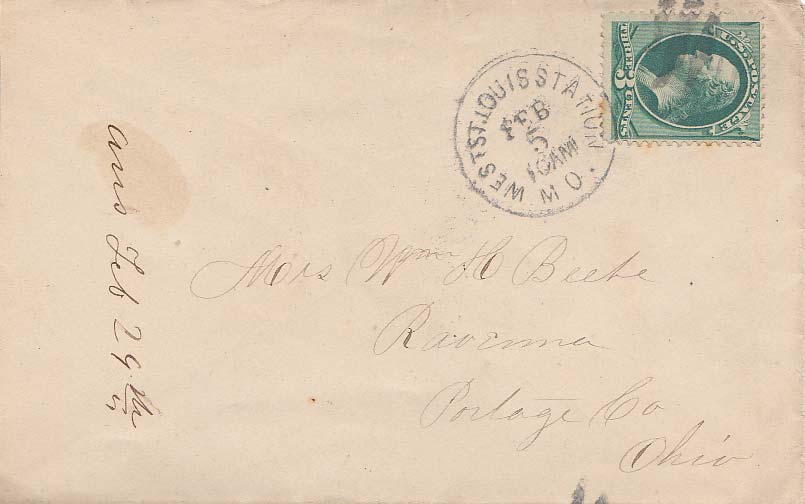 U.S. POSTAGE
THREE 3 CENTS
WEST ST. LOUIS STATION MO.
FEB
5
10AM
Mrs Wm H Beebe
Ravenna
Portage Co
Ohio
ans Feb 29th